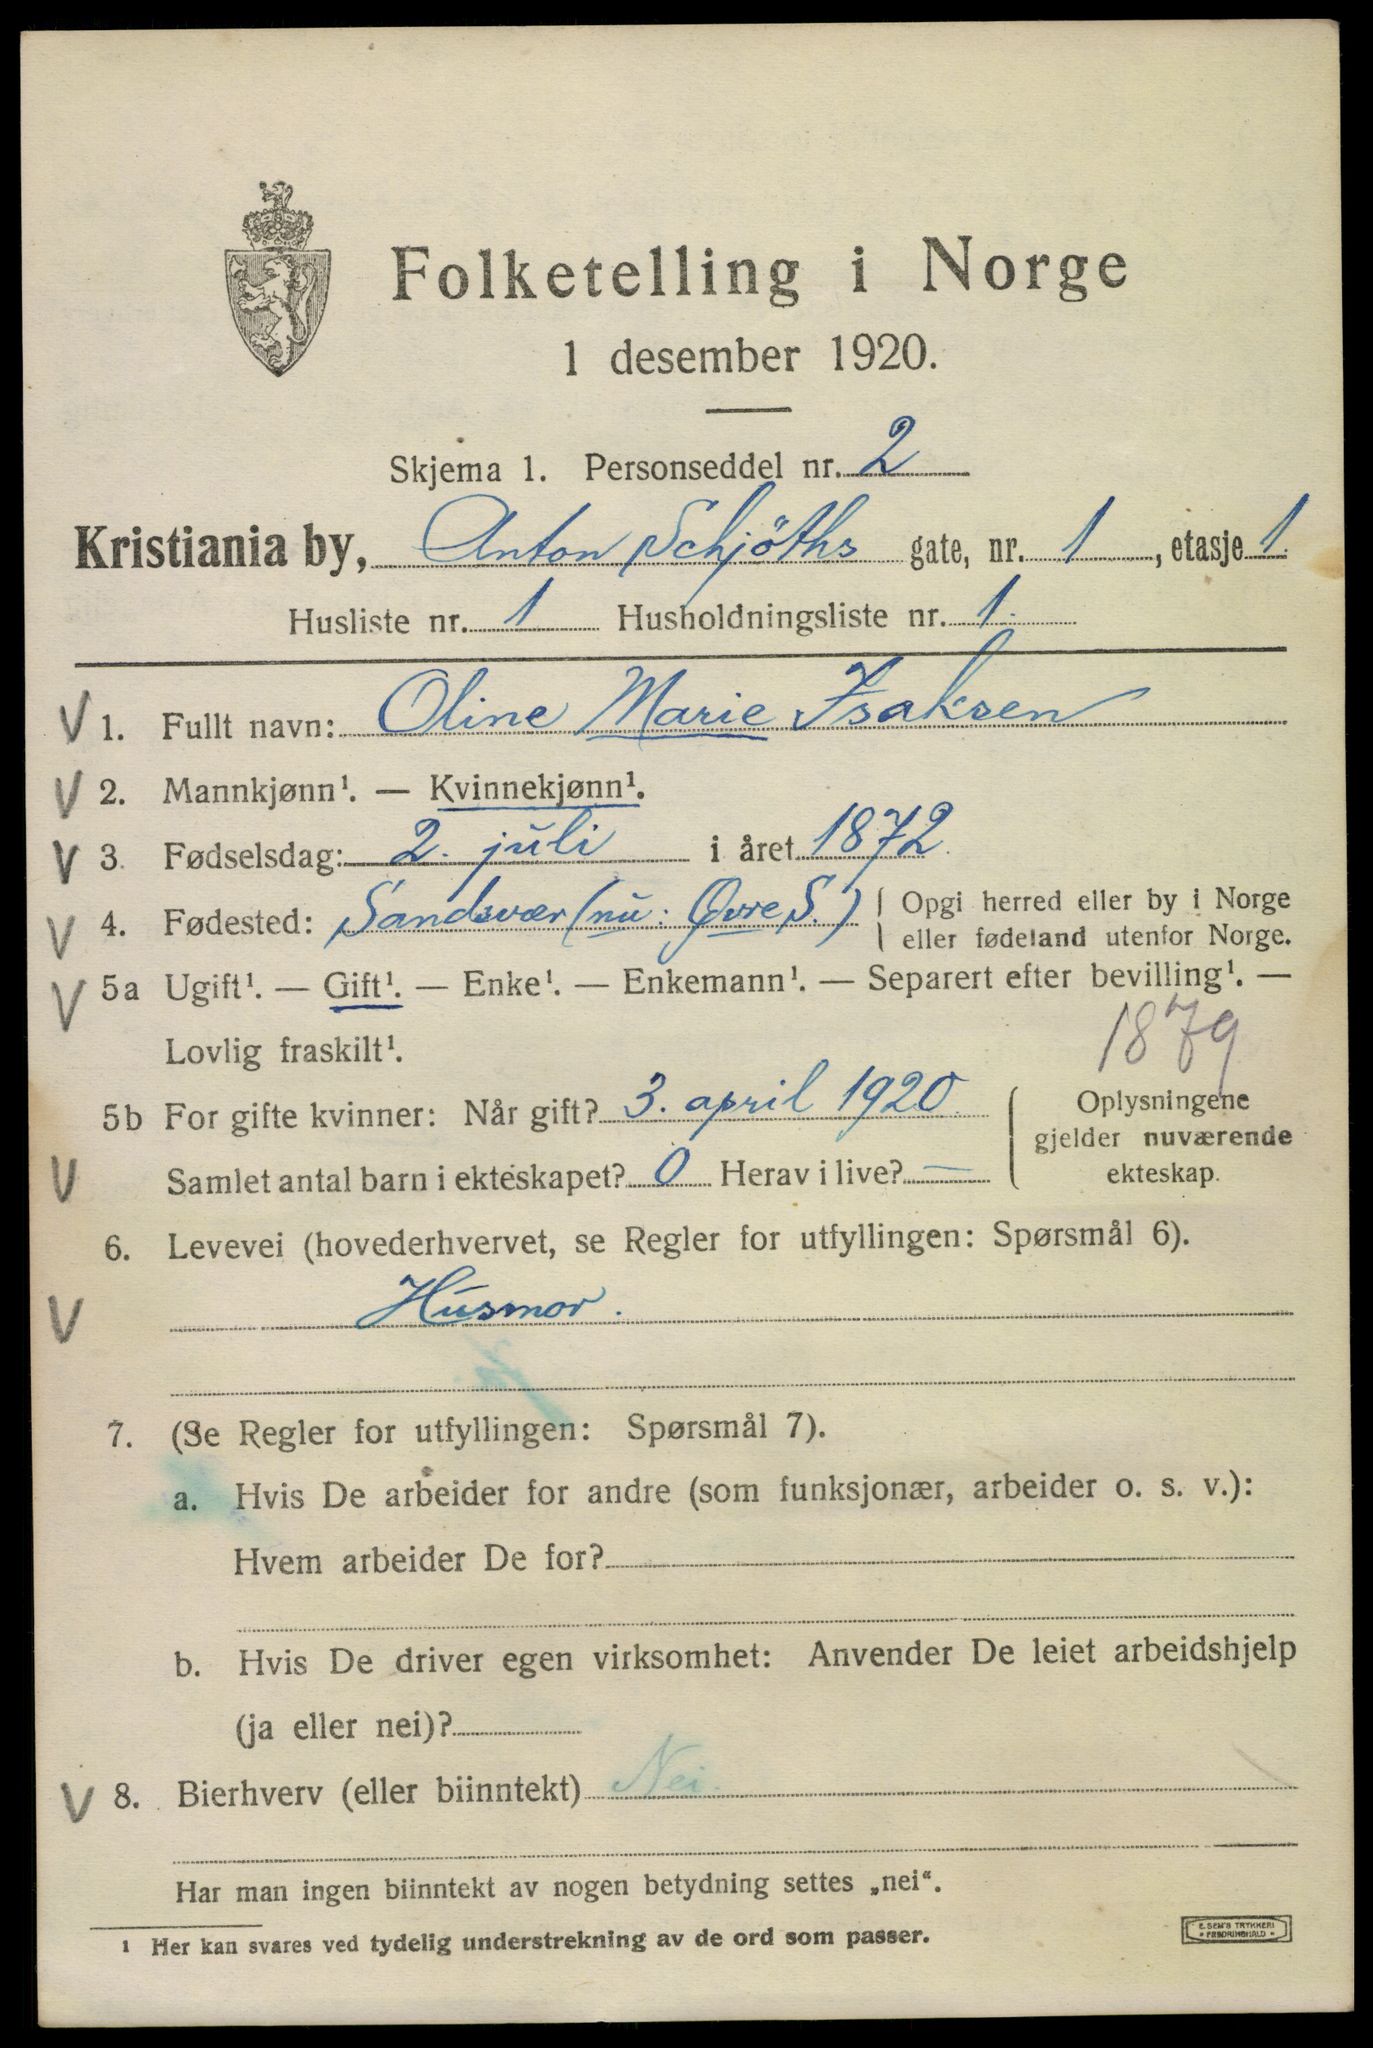 Folketelling i Norge
1 desember 1920.
Skjema 1. Personseddel nr. 2
Kristiania by, Anton Schjöths gate, nr. 1, etasje 1.
Husliste nr. 1 Husholdningsliste nr. 1.
V 1. Fullt navn: Oline Marie Isaksen
V 2. Mannkjønn¹. — Kvinnekjønn¹.
V 3. Fødselsdag: 2. juli i året 1872.
V 4. Fødested: Sandsvær (nu: Øvre S.) Opgi herred eller by i Norge
eller fødeland utenfor Norge.
V 5a Ugift¹. — Gift¹. — Enke¹. — Enkemann¹. — Separert efter bevilling¹. —
Lovlig fraskilt¹. 1879
5b For gifte kvinner: Når gift? 3. april 1920. Oplysningene
gjelder nuværende
V Samlet antal barn i ekteskapet? 0 Herav i live? — ekteskap.
6. Levevei (hovederhvervet, se Regler for utfyllingen: Spørsmål 6).
V Husmor.
7. (Se Regler for utfyllingen: Spørsmål 7).
a. Hvis De arbeider for andre (som funksjonær, arbeider o. s. v.):
Hvem arbeider De for?
b. Hvis De driver egen virksomhet: Anvender De leiet arbeidshjelp
(ja eller nei)?
V 8. Bierhverv (eller biinntekt) Nei.
Har man ingen biinntekt av nogen betydning settes „nei“.
¹ Her kan svares ved tydelig understrekning av de ord som passer.
E. SEM'S TRYKKERI
* FREDRIKSHALD *